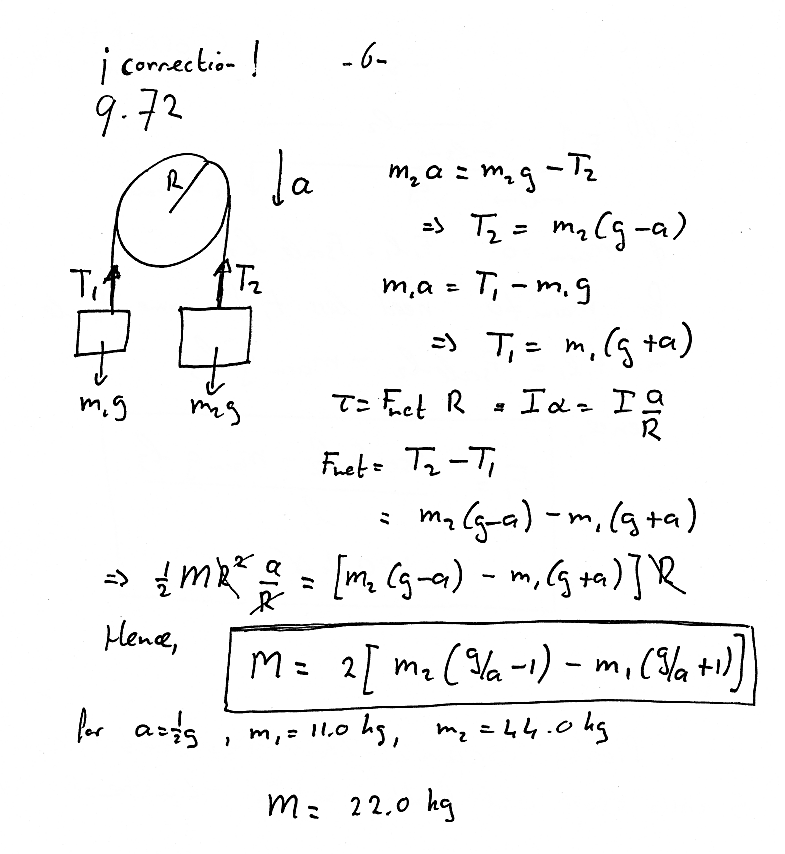 ¡ correction ! -6-
9.72
R ↓a
T₁ T₂
m₁g m₂g
m₂a = m₂g - T₂
=> T₂ = m₂(g-a)
m₁a = T₁ - m₁g
=> T₁ = m₁(g+a)
τ = Fnet R = Iα = I a/R
Fnet = T₂ - T₁
= m₂(g-a) - m₁(g+a)
=> ½ MR² a/R = [m₂(g-a) - m₁(g+a)] R
Hence,
M = 2[ m₂(g/a -1) - m₁(g/a +1)]
for a=½g , m₁ = 11.0 kg, m₂ = 44.0 kg
M = 22.0 kg